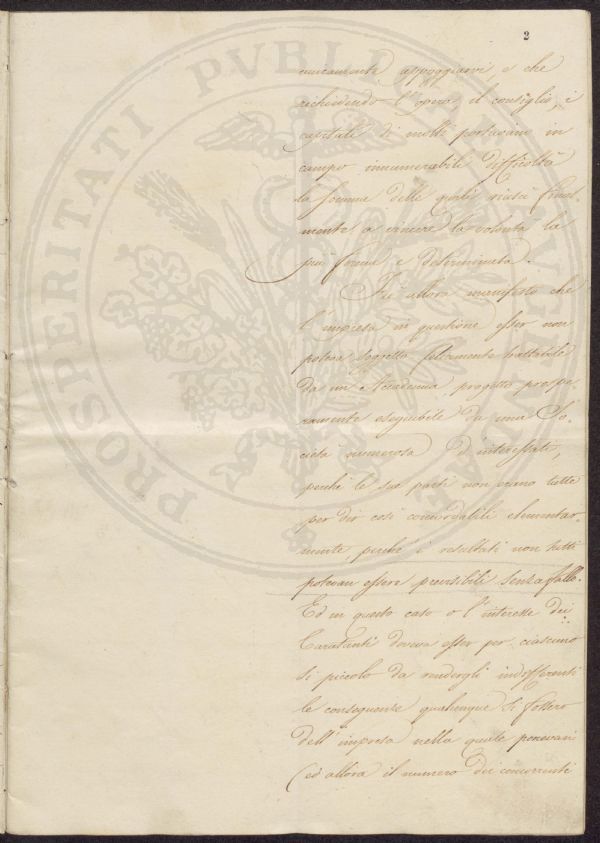 2
unicamente appoggiarsi, e che
richiedendo l'opera, il consiglio, i
capitali di molti portavano in
campo innumerabili difficoltà
la somma delle quali riuscì final-
mente a vincere la volontà la
più ferma e determinata.
Fu allora manifesto che
l'impresa in questione esser non
poteva soggetto felicemente trattabile
da un'Accademia, progetto prospe-
ramente eseguibile da una So-
cietà numerosa d'interessati,
perché le sue parti non erano tutte
per dir così concordabili elementar-
mente, perché i resultati non tutti
potevan essere previsibili senza fallo.
Ed in questo caso o l'interesse dei
Caratanti doveva esser per ciascuno
sì piccolo da rendergli indifferenti
le conseguenze qualunque si fossero
dell'impresa nella quale ponevansi
(ed allora il numero dei concorrenti
PROSPERITATI PVBLICAE AVGE